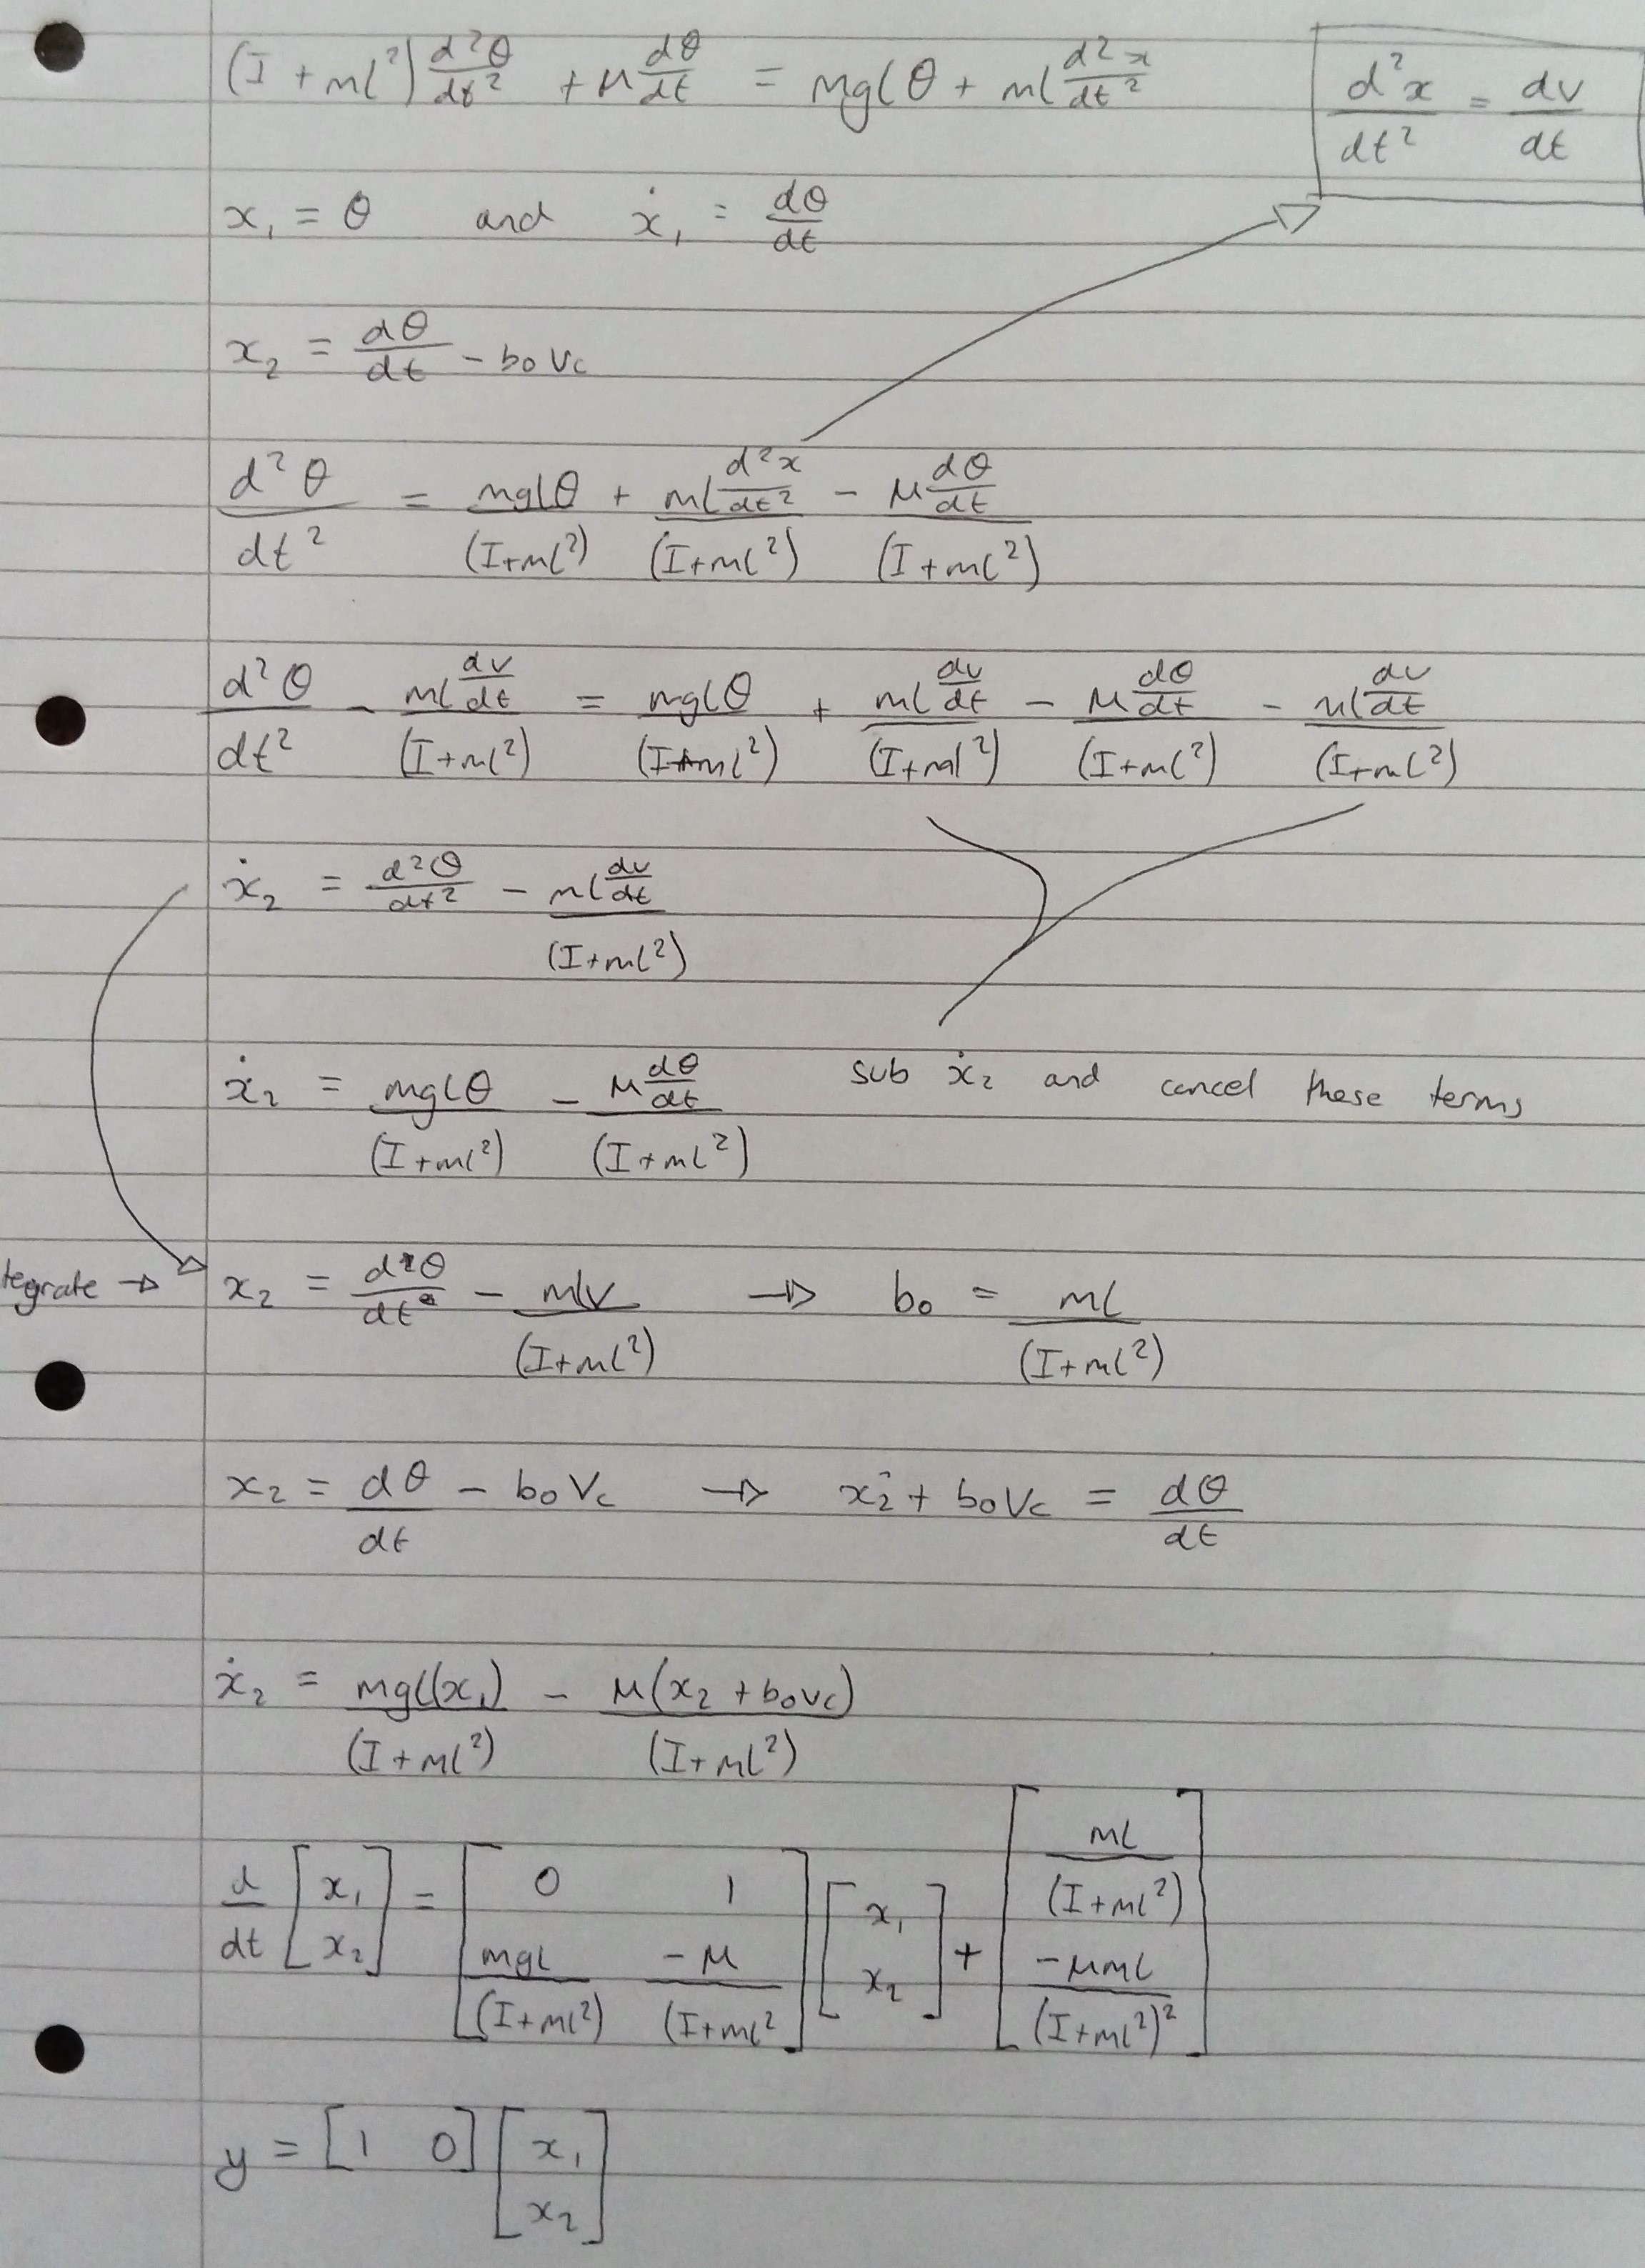 (I + ml²) d²θ/dt² + μ dθ/dt = mglθ + ml d²x/dt²
d²x/dt² = dv/dt
x₁ = θ and ẋ₁ = dθ/dt
x₂ = dθ/dt - b₀Vc
d²θ/dt² = mglθ/(I+ml²) + ml d²x/dt²/(I+ml²) - μ dθ/dt/(I+ml²)
d²θ/dt² - ml dv/dt/(I+ml²) = mglθ/(I+ml²) + ml dv/dt/(I+ml²) - μ dθ/dt/(I+ml²) - ml dv/dt/(I+ml²)
ẋ₂ = d²θ/dt² - ml dv/dt/(I+ml²)
ẋ₂ = mglθ/(I+ml²) - μ dθ/dt/(I+ml²) sub ẋ₂ and cancel these terms
tegrate → x₂ = dθ/dt - mlv/(I+ml²) → b₀ = ml/(I+ml²)
x₂ = dθ/dt - b₀Vc → x₂ + b₀Vc = dθ/dt
ẋ₂ = mgl(x₁)/(I+ml²) - μ(x₂ + b₀vc)/(I+ml²)
d/dt [x₁; x₂] = [0 1; mgl/(I+ml²) -μ/(I+ml²] [x₁; x₂] + [ml/(I+ml²); -μml/(I+ml²)²]
y = [1 0] [x₁; x₂]